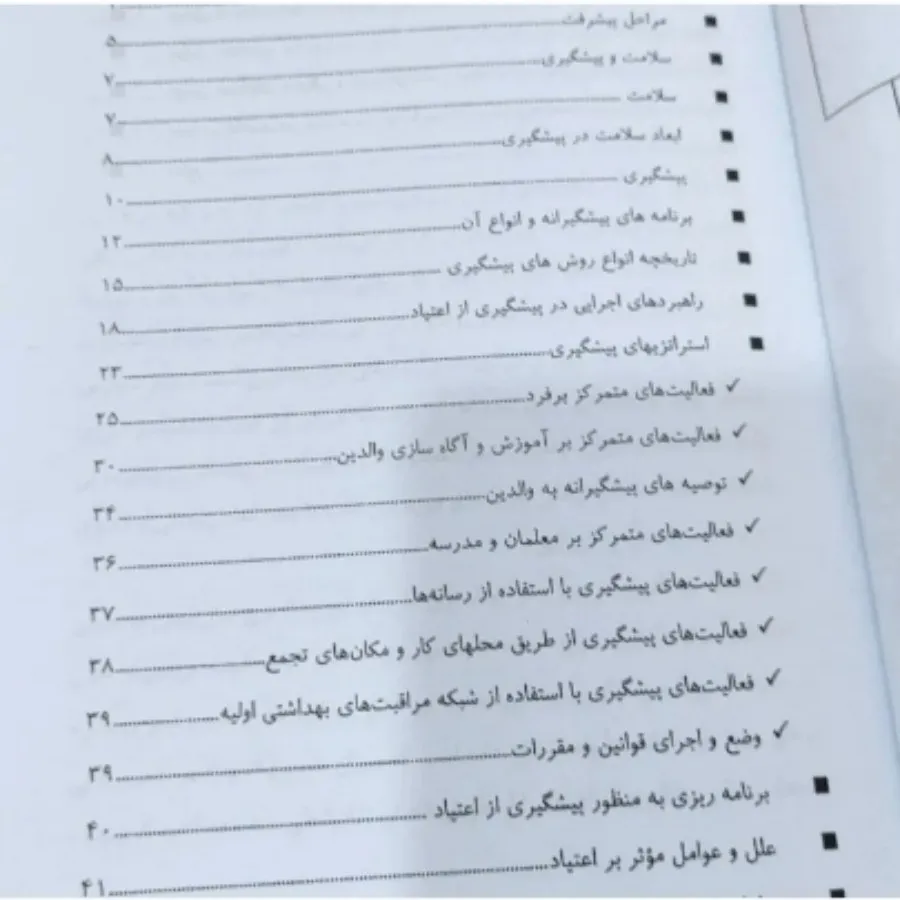 ■ مراحل پیشرفت ........ ۵
■ سلامت و پیشگیری ........ ۷
■ سلامت ........ ۷
■ ابعاد سلامت در پیشگیری ........ ۸
■ پیشگیری ........ ۱۰
■ برنامه های پیشگیرانه و انواع آن ........ ۱۲
■ تاریخچه انواع روش های پیشگیری ........ ۱۵
■ راهبردهای اجرایی در پیشگیری از اعتیاد ........ ۱۸
■ استراتژیهای پیشگیری ........ ۲۳
✓ فعالیت‌های متمرکز برفرد ........ ۲۵
✓ فعالیت‌های متمرکز بر آموزش و آگاه سازی والدین ........ ۳۰
✓ توصیه های پیشگیرانه به والدین ........ ۳۴
✓ فعالیت‌های متمرکز بر معلمان و مدرسه ........ ۳۶
✓ فعالیت‌های پیشگیری با استفاده از رسانه‌ها ........ ۳۷
✓ فعالیت‌های پیشگیری از طریق محلهای کار و مکان‌های تجمع ........ ۳۸
✓ فعالیت‌های پیشگیری با استفاده از شبکه مراقبت‌های بهداشتی اولیه ........ ۳۹
✓ وضع و اجرای قوانین و مقررات ........ ۳۹
■ برنامه ریزی به منظور پیشگیری از اعتیاد ........ ۴۰
■ علل و عوامل مؤثر بر اعتیاد ........ ۴۱